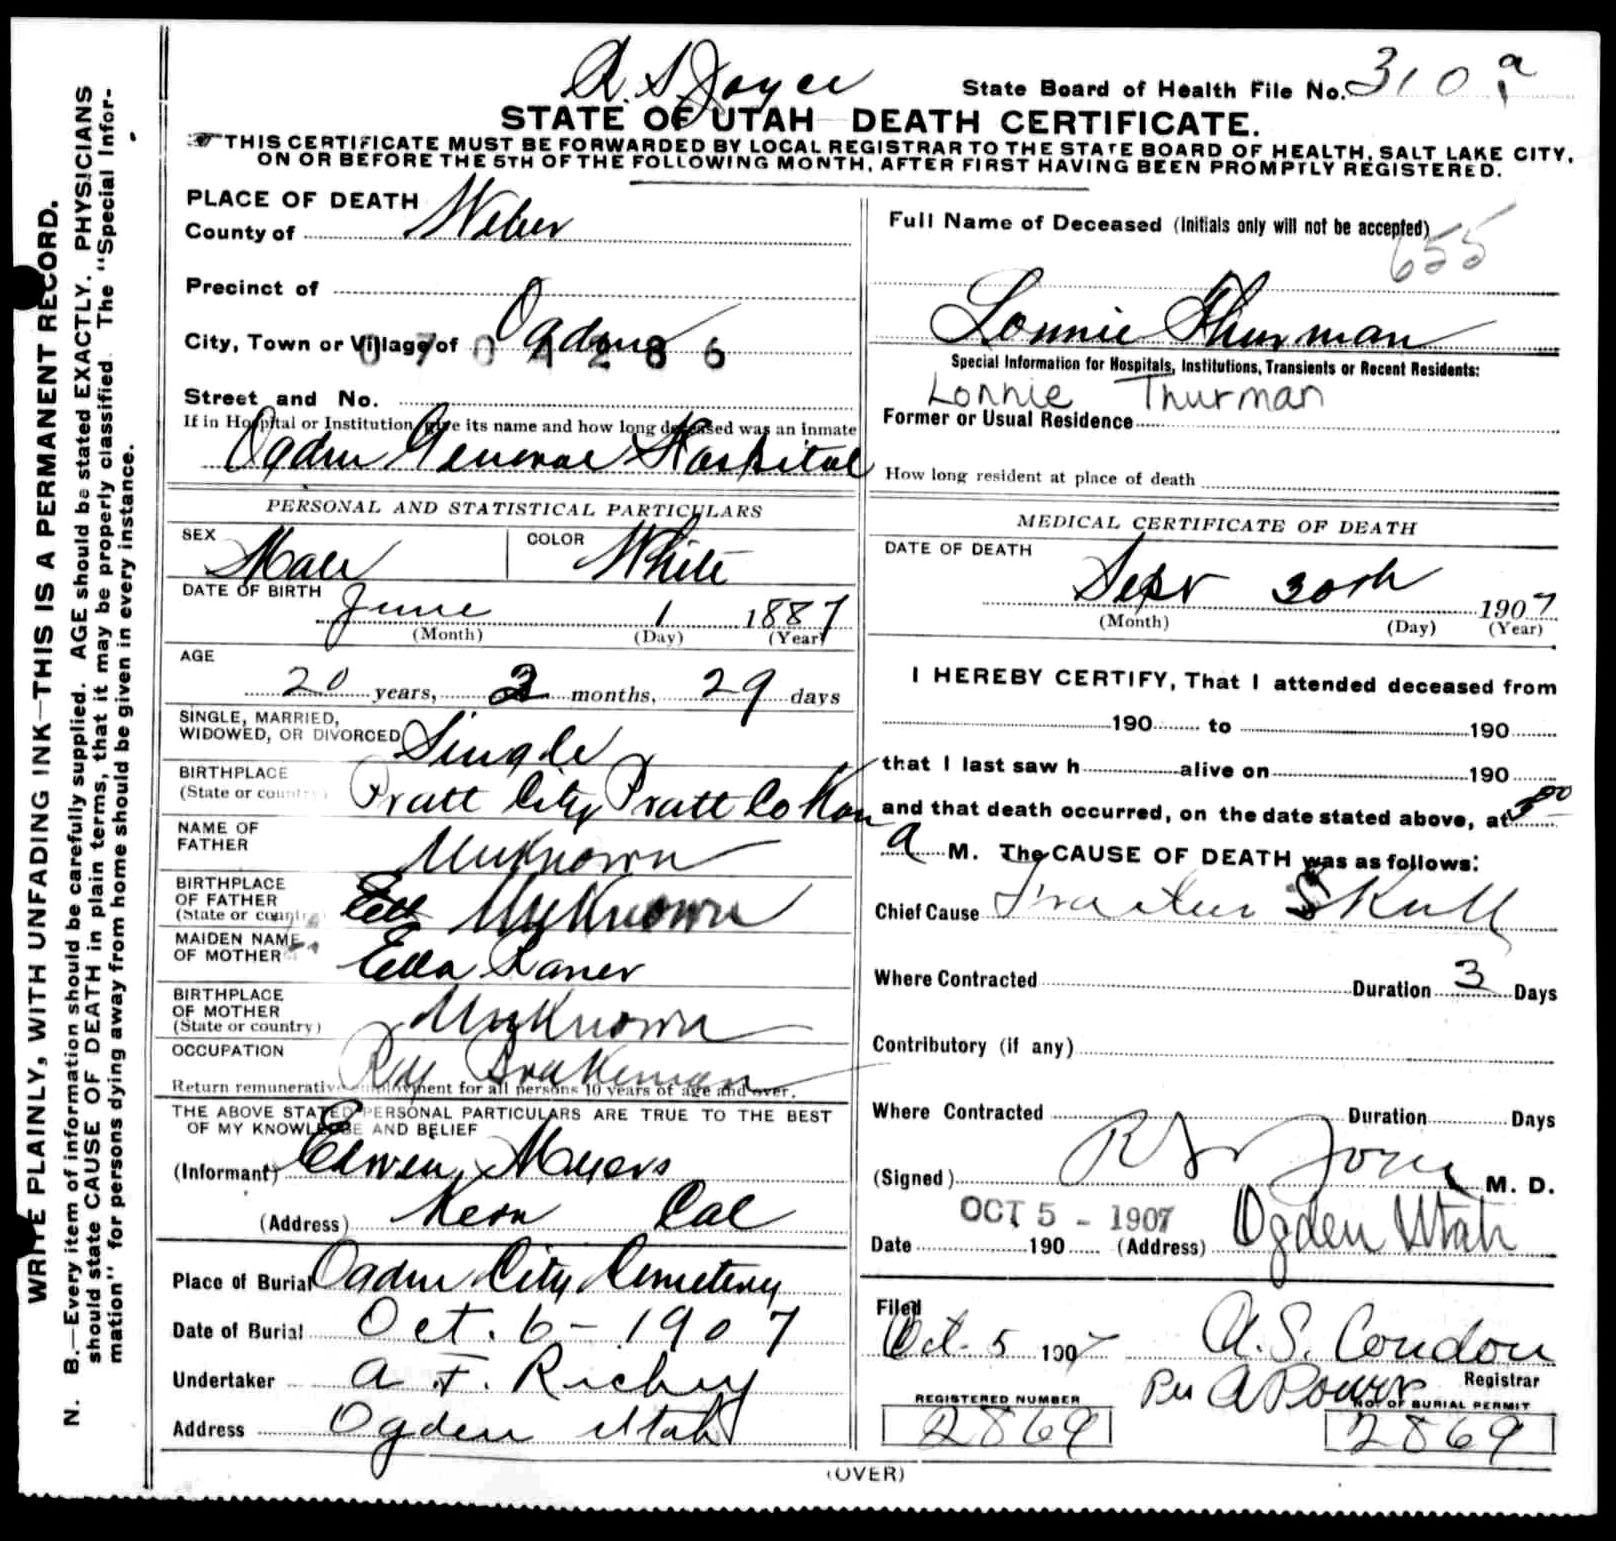 A. S. Joyce
State Board of Health File No. 310 a
STATE OF UTAH—DEATH CERTIFICATE.
THIS CERTIFICATE MUST BE FORWARDED BY LOCAL REGISTRAR TO THE STATE BOARD OF HEALTH, SALT LAKE CITY,
ON OR BEFORE THE 5TH OF THE FOLLOWING MONTH, AFTER FIRST HAVING BEEN PROMPTLY REGISTERED.
WRITE PLAINLY, WITH UNFADING INK—THIS IS A PERMANENT RECORD.
N. B.—Every item of information should be carefully supplied. AGE should be stated EXACTLY. PHYSICIANS
should state CAUSE OF DEATH in plain terms, that it may be properly classified. The "Special Infor-
mation" for persons dying away from home should be given in every instance.
PLACE OF DEATH
County of Weber
Precinct of
City, Town or Village of Ogden
0704286
Street and No.
If in Hospital or Institution, give its name and how long deceased was an inmate
Ogden General Hospital
PERSONAL AND STATISTICAL PARTICULARS
SEX Male COLOR White
DATE OF BIRTH June 1 1887
(Month) (Day) (Year)
AGE
20 years, 3 months, 29 days
SINGLE, MARRIED,
WIDOWED, OR DIVORCED Single
BIRTHPLACE
(State or country) Pratt City Pratt Co Kan
NAME OF
FATHER Unknown
BIRTHPLACE
OF FATHER
(State or country) Unknown
MAIDEN NAME
OF MOTHER Ella Raner
BIRTHPLACE
OF MOTHER
(State or country) Unknown
OCCUPATION Ry Brakeman
Return remunerative employment for all persons 10 years of age and over.
THE ABOVE STATED PERSONAL PARTICULARS ARE TRUE TO THE BEST
OF MY KNOWLEDGE AND BELIEF
(Informant) Edwen Myers
(Address) Kern Cal
Place of Burial Ogden City Cemetery
Date of Burial Oct. 6 - 1907
Undertaker A. F. Richey
Address Ogden Utah
Full Name of Deceased (Initials only will not be accepted)
655
Lonnie Thurman
Special Information for Hospitals, Institutions, Transients or Recent Residents:
Lonnie Thurman
Former or Usual Residence
How long resident at place of death
MEDICAL CERTIFICATE OF DEATH
DATE OF DEATH
Sept 30th 1907
(Month) (Day) (Year)
I HEREBY CERTIFY, That I attended deceased from
190 to 190
that I last saw h alive on 190
and that death occurred, on the date stated above, at 3 00
a M. The CAUSE OF DEATH was as follows:
Chief Cause Fracture Skull
Where Contracted Duration 3 Days
Contributory (if any)
Where Contracted Duration Days
(Signed) R S Joyce M. D.
OCT 5 - 1907
Date 190 (Address) Ogden Utah
Filed
Oct. 5 1907 A. S. Condon
Registrar
Per A Power
REGISTERED NUMBER NO. OF BURIAL PERMIT
2869 2869
(OVER)